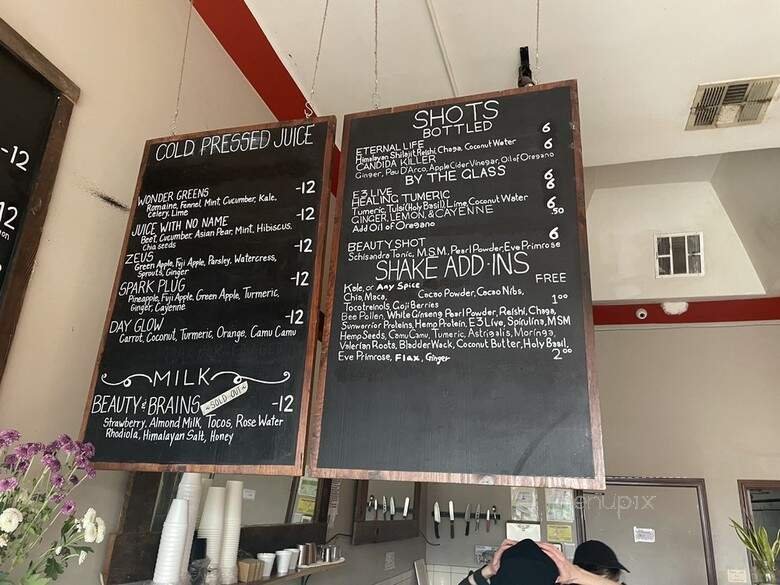 -12
12
COLD PRESSED JUICE
WONDER GREENS -12
Romaine, Fennel, Mint, Cucumber, Kale,
Celery, Lime
JUICE WITH NO NAME -12
Beet, Cucumber, Asian Pear, Mint, Hibiscus,
Chia seeds
ZEUS -12
Green Apple, Fuji Apple, Parsley, Watercress,
Sprouts, Ginger
SPARK PLUG -12
Pineapple, Fuji Apple, Green Apple, Turmeric,
Ginger, Cayenne
DAY GLOW -12
Carrot, Coconut, Turmeric, Orange, Camu Camu
MILK
BEAUTY & BRAINS ~SOLD OUT~ -12
Strawberry, Almond Milk, Tocos, Rose Water
Rhodiola, Himalayan Salt, Honey
SHOTS
BOTTLED
ETERNAL LIFE 6
Himalayan Shilejit, Reishi, Chaga, Coconut Water
CANDIDA KILLER 6
Ginger, Pau D'Arco, Apple Cider Vinegar, Oil of Oregano
BY THE GLASS
E3 LIVE 6
HEALING TUMERIC 6
Tumeric Tulsi (Holy Basil) Lime, Coconut Water
GINGER, LEMON, & CAYENNE 6
Add Oil of Oregano .50
BEAUTY SHOT 6
Schisandra Tonic, M.S.M, Pearl Powder, Eve Primrose
SHAKE ADD-INS
Kale, or Any Spice FREE
Chia, Maca, Cacao Powder, Cacao Nibs,
Tocotreinols, Goji Berries 1.00
Bee Pollen, White Ginseng Pearl Powder, Reishi, Chaga,
Sunwarrior Proteins, Hemp Protein, E3 Live, Spirulina, MSM
Hemp Seeds, Camu Camu, Tumeric, Astrigalis, Moringa,
Valerian Roots, Bladder Wack, Coconut Butter, Holy Basil,
Eve Primrose, Flax, Ginger 2.00
menupix